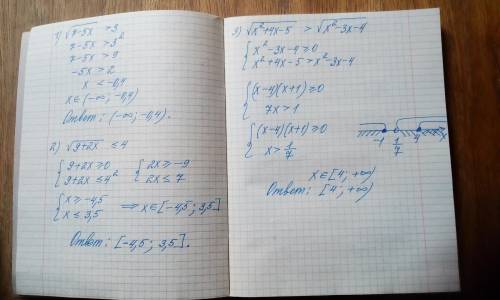 1) √(7-5x) > 3
7-5x > 3²
7-5x > 9
-5x > 2
x < -0,4
x∈(-∞; -0,4)
Ответ: (-∞; -0,4).
2) √(9+2x) ≤ 4
{ 9+2x ≥ 0 { 2x ≥ -9
{ 9+2x ≤ 4² { 2x ≤ 7
{ x ≥ -4,5
{ x ≤ 3,5 ⇒ x∈[-4,5; 3,5]
Ответ: [-4,5; 3,5].
3) √(x²+4x-5) > √(x²-3x-4)
{ x²-3x-4 ≥ 0
{ x²+4x-5 > x²-3x-4
{ (x-4)(x+1) ≥ 0
{ 7x > 1
{ (x-4)(x+1) ≥ 0
{ x > 1/7
-1 1/7 4 x
x∈[4; +∞)
Ответ: [4; +∞)